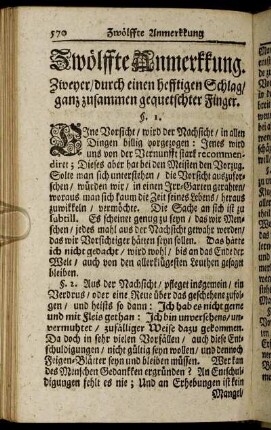 570 Zwölffte Anmerkkung
Zwölffte Anmerkkung.
Zweyer/durch einen hefftigen Schlag/
ganz zusammen gequetschter Finger.
§. 1.
Eine Vorsicht/ wird der Nachsicht/ in allen
Dingen billig vorgezogen: Jenes wird
uns von der Vernunfft starck recommen-
diret; Dieses aber hat bei den Meisten den Vorzug.
Solte man sich unterstehen/ die Vorsicht auszufor-
schen/ würden wir/ in einen Irr-Garten gerahten/
woraus man sich kaum die Zeit seines Lebens/ heraus
zuwikkeln/ vermöchte. Die Sache an sich ist zu
subtill. Es scheinet genug zu seyn/ das wir Men-
schen/ jedes mahl aus der Nachsicht gewahr werden/
das wir Vorsichtiger hätten seyn sollen. Das hätte
ich nicht gedacht/ wird wohl/ bis an das Ende der
Welt/ auch von den allerklügesten Leuthen gesagt
bleiben.
§. 2. Aus der Nachsicht/ pfleget insgemein/ ein
Verdrus/ oder eine Reue über das geschehene zufol-
gen/ und heists so dann: Ich hab es nicht gerne
und mit Fleis gethan: Ich bin unversehens/ un-
vermuhter/ zufälliger Weise dazu gekommen.
Da doch in sehr vielen Vorfällen/ auch diese Ent-
schuldigungen/ nicht gültig seyn wollen/ und dennoch
Feigen-Blätter seyn und bleiben müssen. Wer kan
des Menschen Gedankken ergründen? An Entschul-
digungen fehlt es nie; Und an Erhebungen ist kein
Mangel/